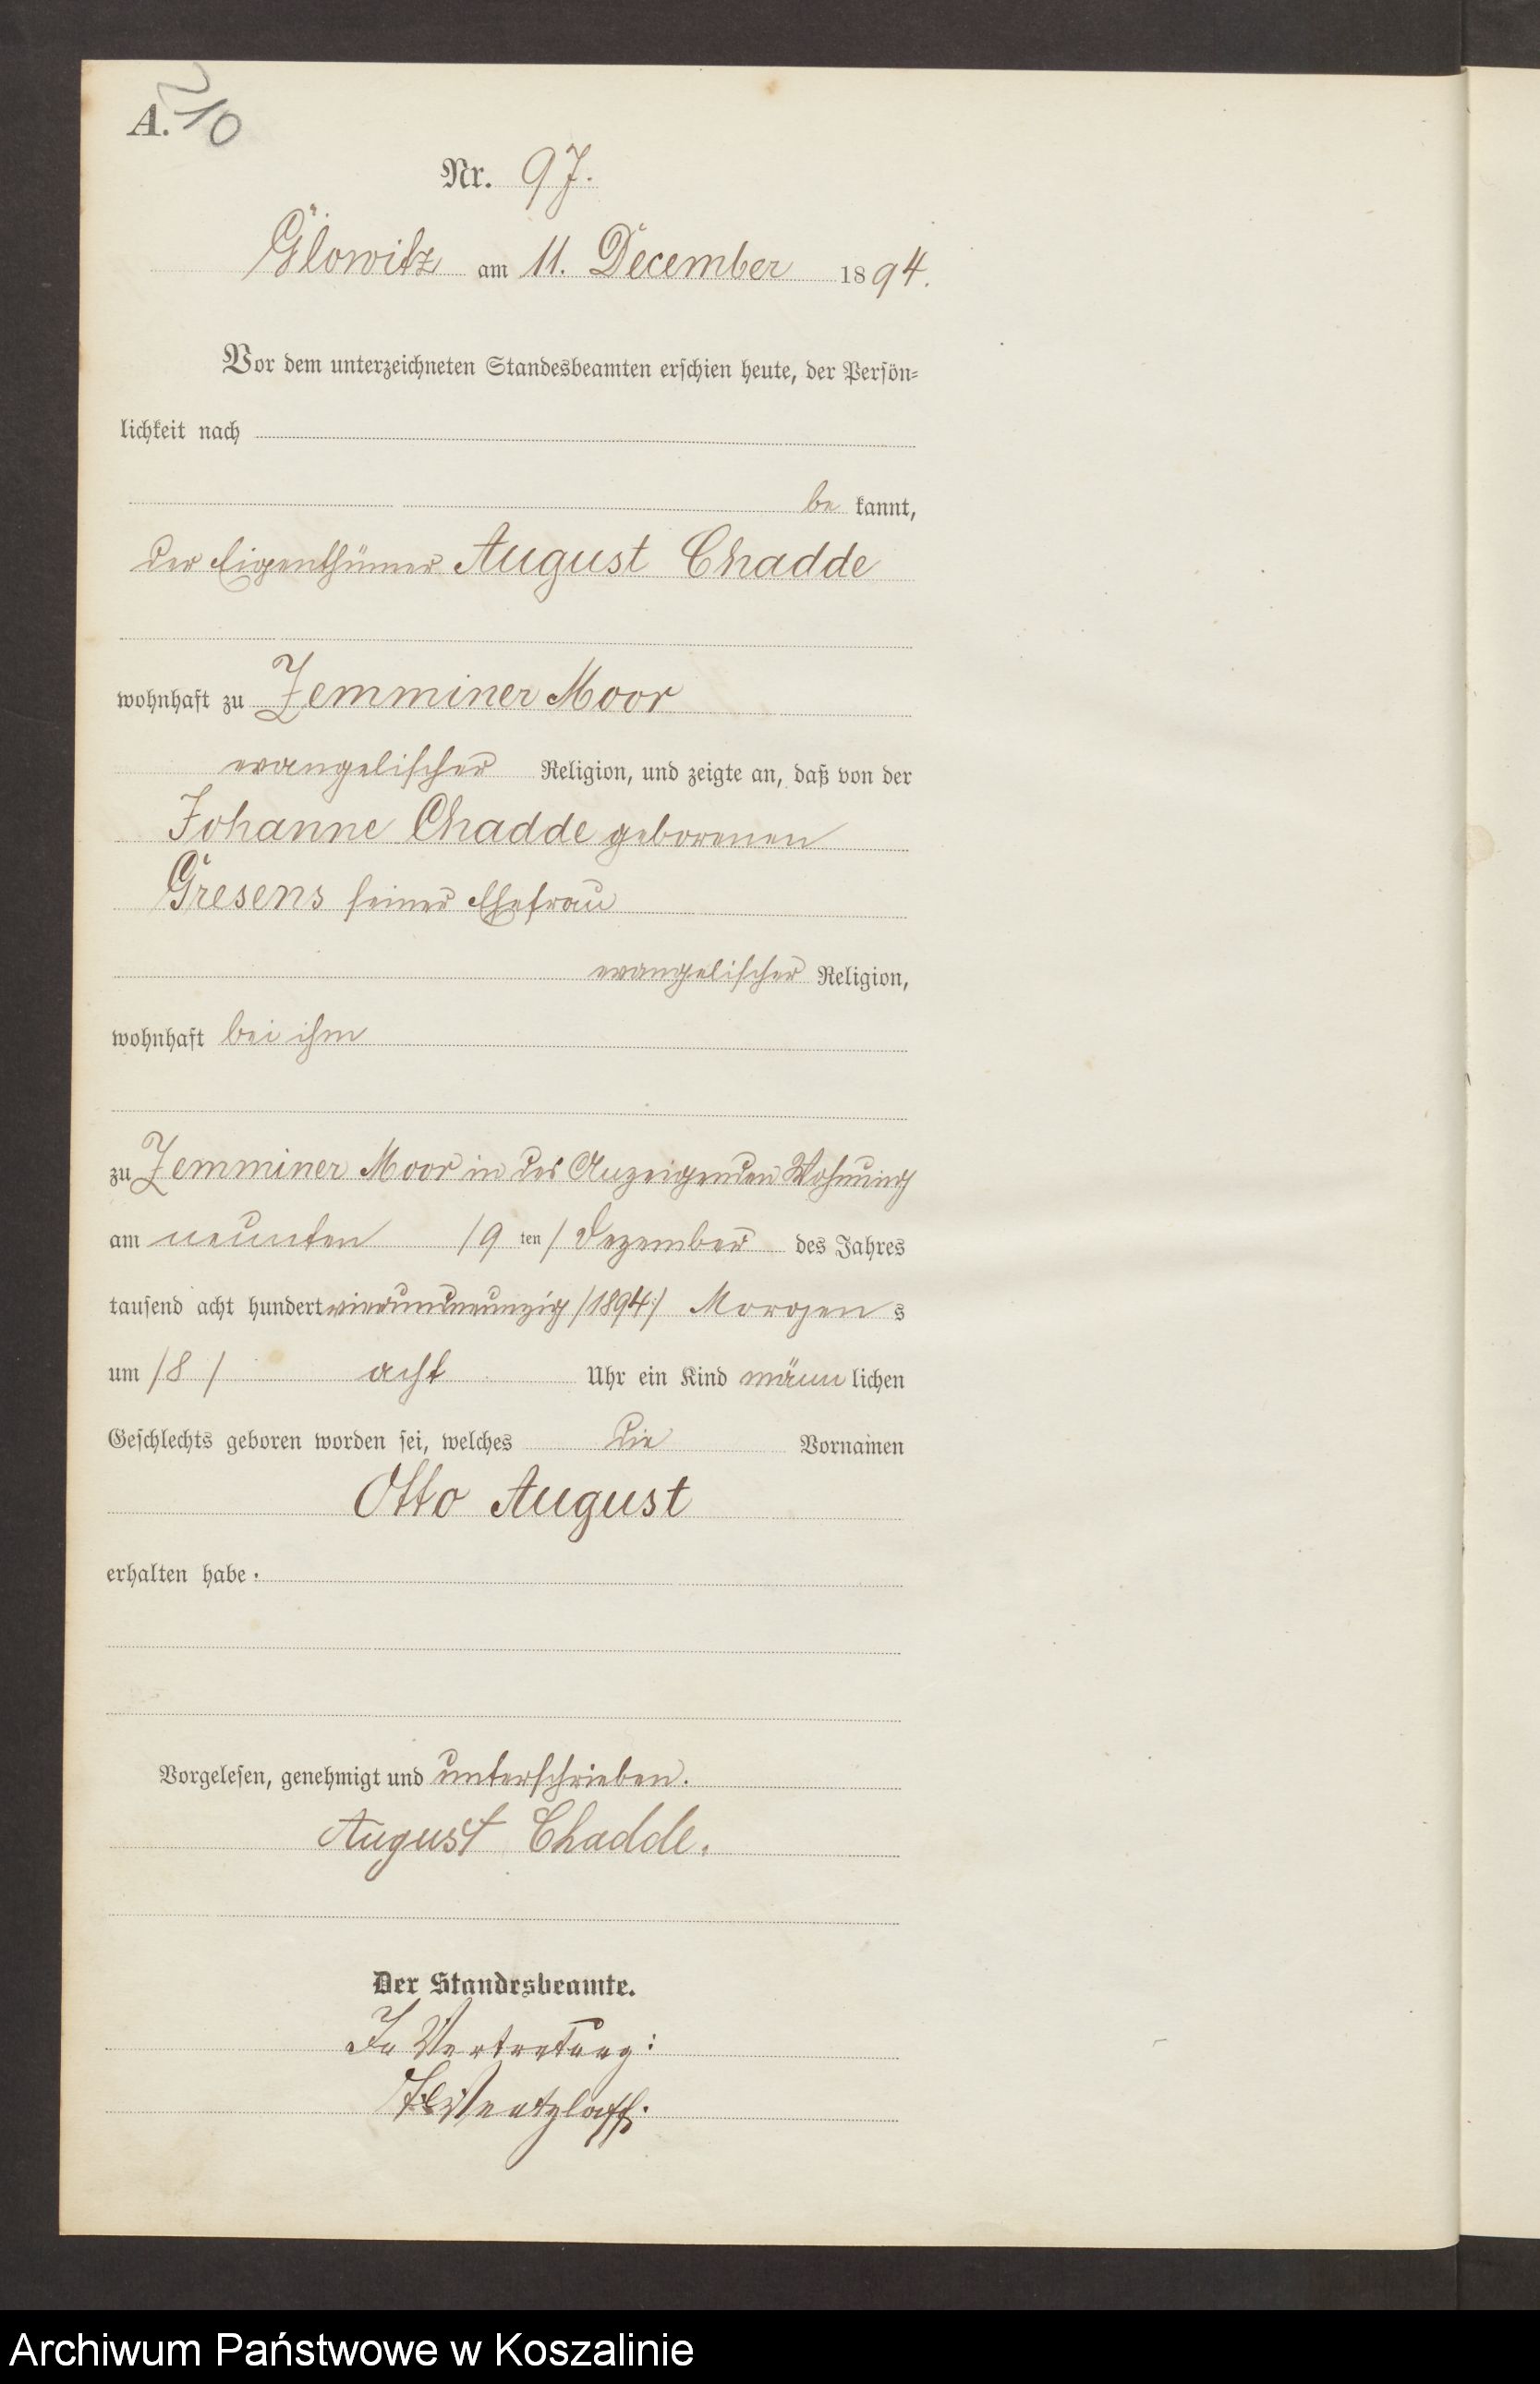 A. 210
Nr. 97.
Glowitz am 11. December 1894.
Vor dem unterzeichneten Standesbeamten erschien heute, der Persön-
lichkeit nach
be kannt,
der Eigenthümer August Chadde
wohnhaft zu Zemminer Moor
evangelischer Religion, und zeigte an, daß von der
Johanne Chadde geborenen
Gresens seiner Ehefrau
evangelischer Religion,
wohnhaft bei ihm
zu Zemminer Moor in des Anzeigenden Wohnung
am neunten /9 ten/ Dezember des Jahres
tausend acht hundert vierundneunzig /1894/ Morgen s
um /8/ acht Uhr ein Kind männ lichen
Geschlechts geboren worden sei, welches die Vornamen
Otto August
erhalten habe.
Vorgelesen, genehmigt und unterschrieben.
August Chadde.
Der Standesbeamte.
In Vertretung:
Wentzlaff.
Archiwum Państwowe w Koszalinie